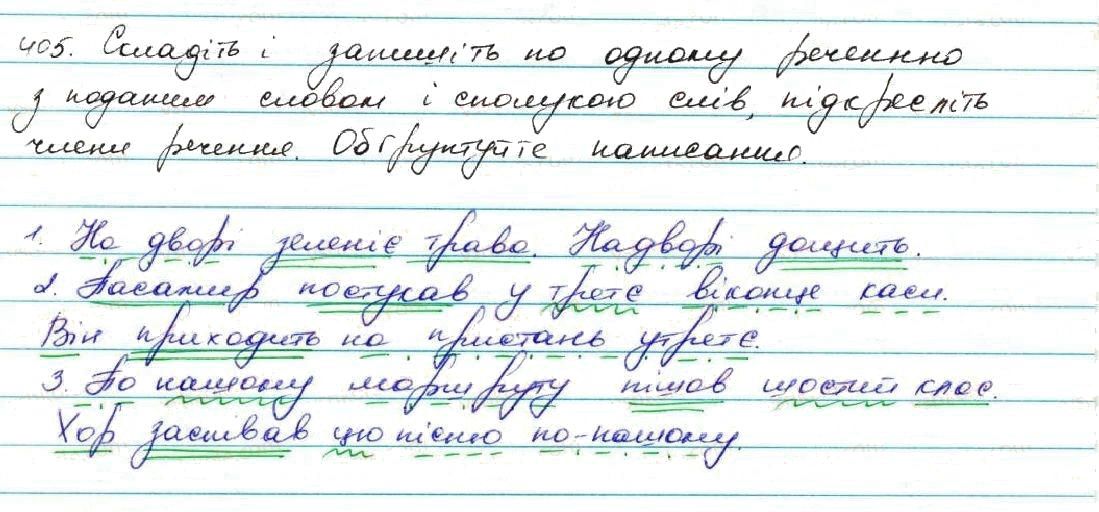 405. Складіть і запишіть по одному реченню
з поданим словом і сполукою слів, підкресліть
члени речення. Обґрунтуйте написання.
1. На дворі зеленіє трава. Надворі дощить.
2. Пасажир постукав у третє віконце каси.
Він приходить на пристань утретє.
3. По нашому маршруту пішов шостий клас.
Хор заспівав цю пісню по-нашому.